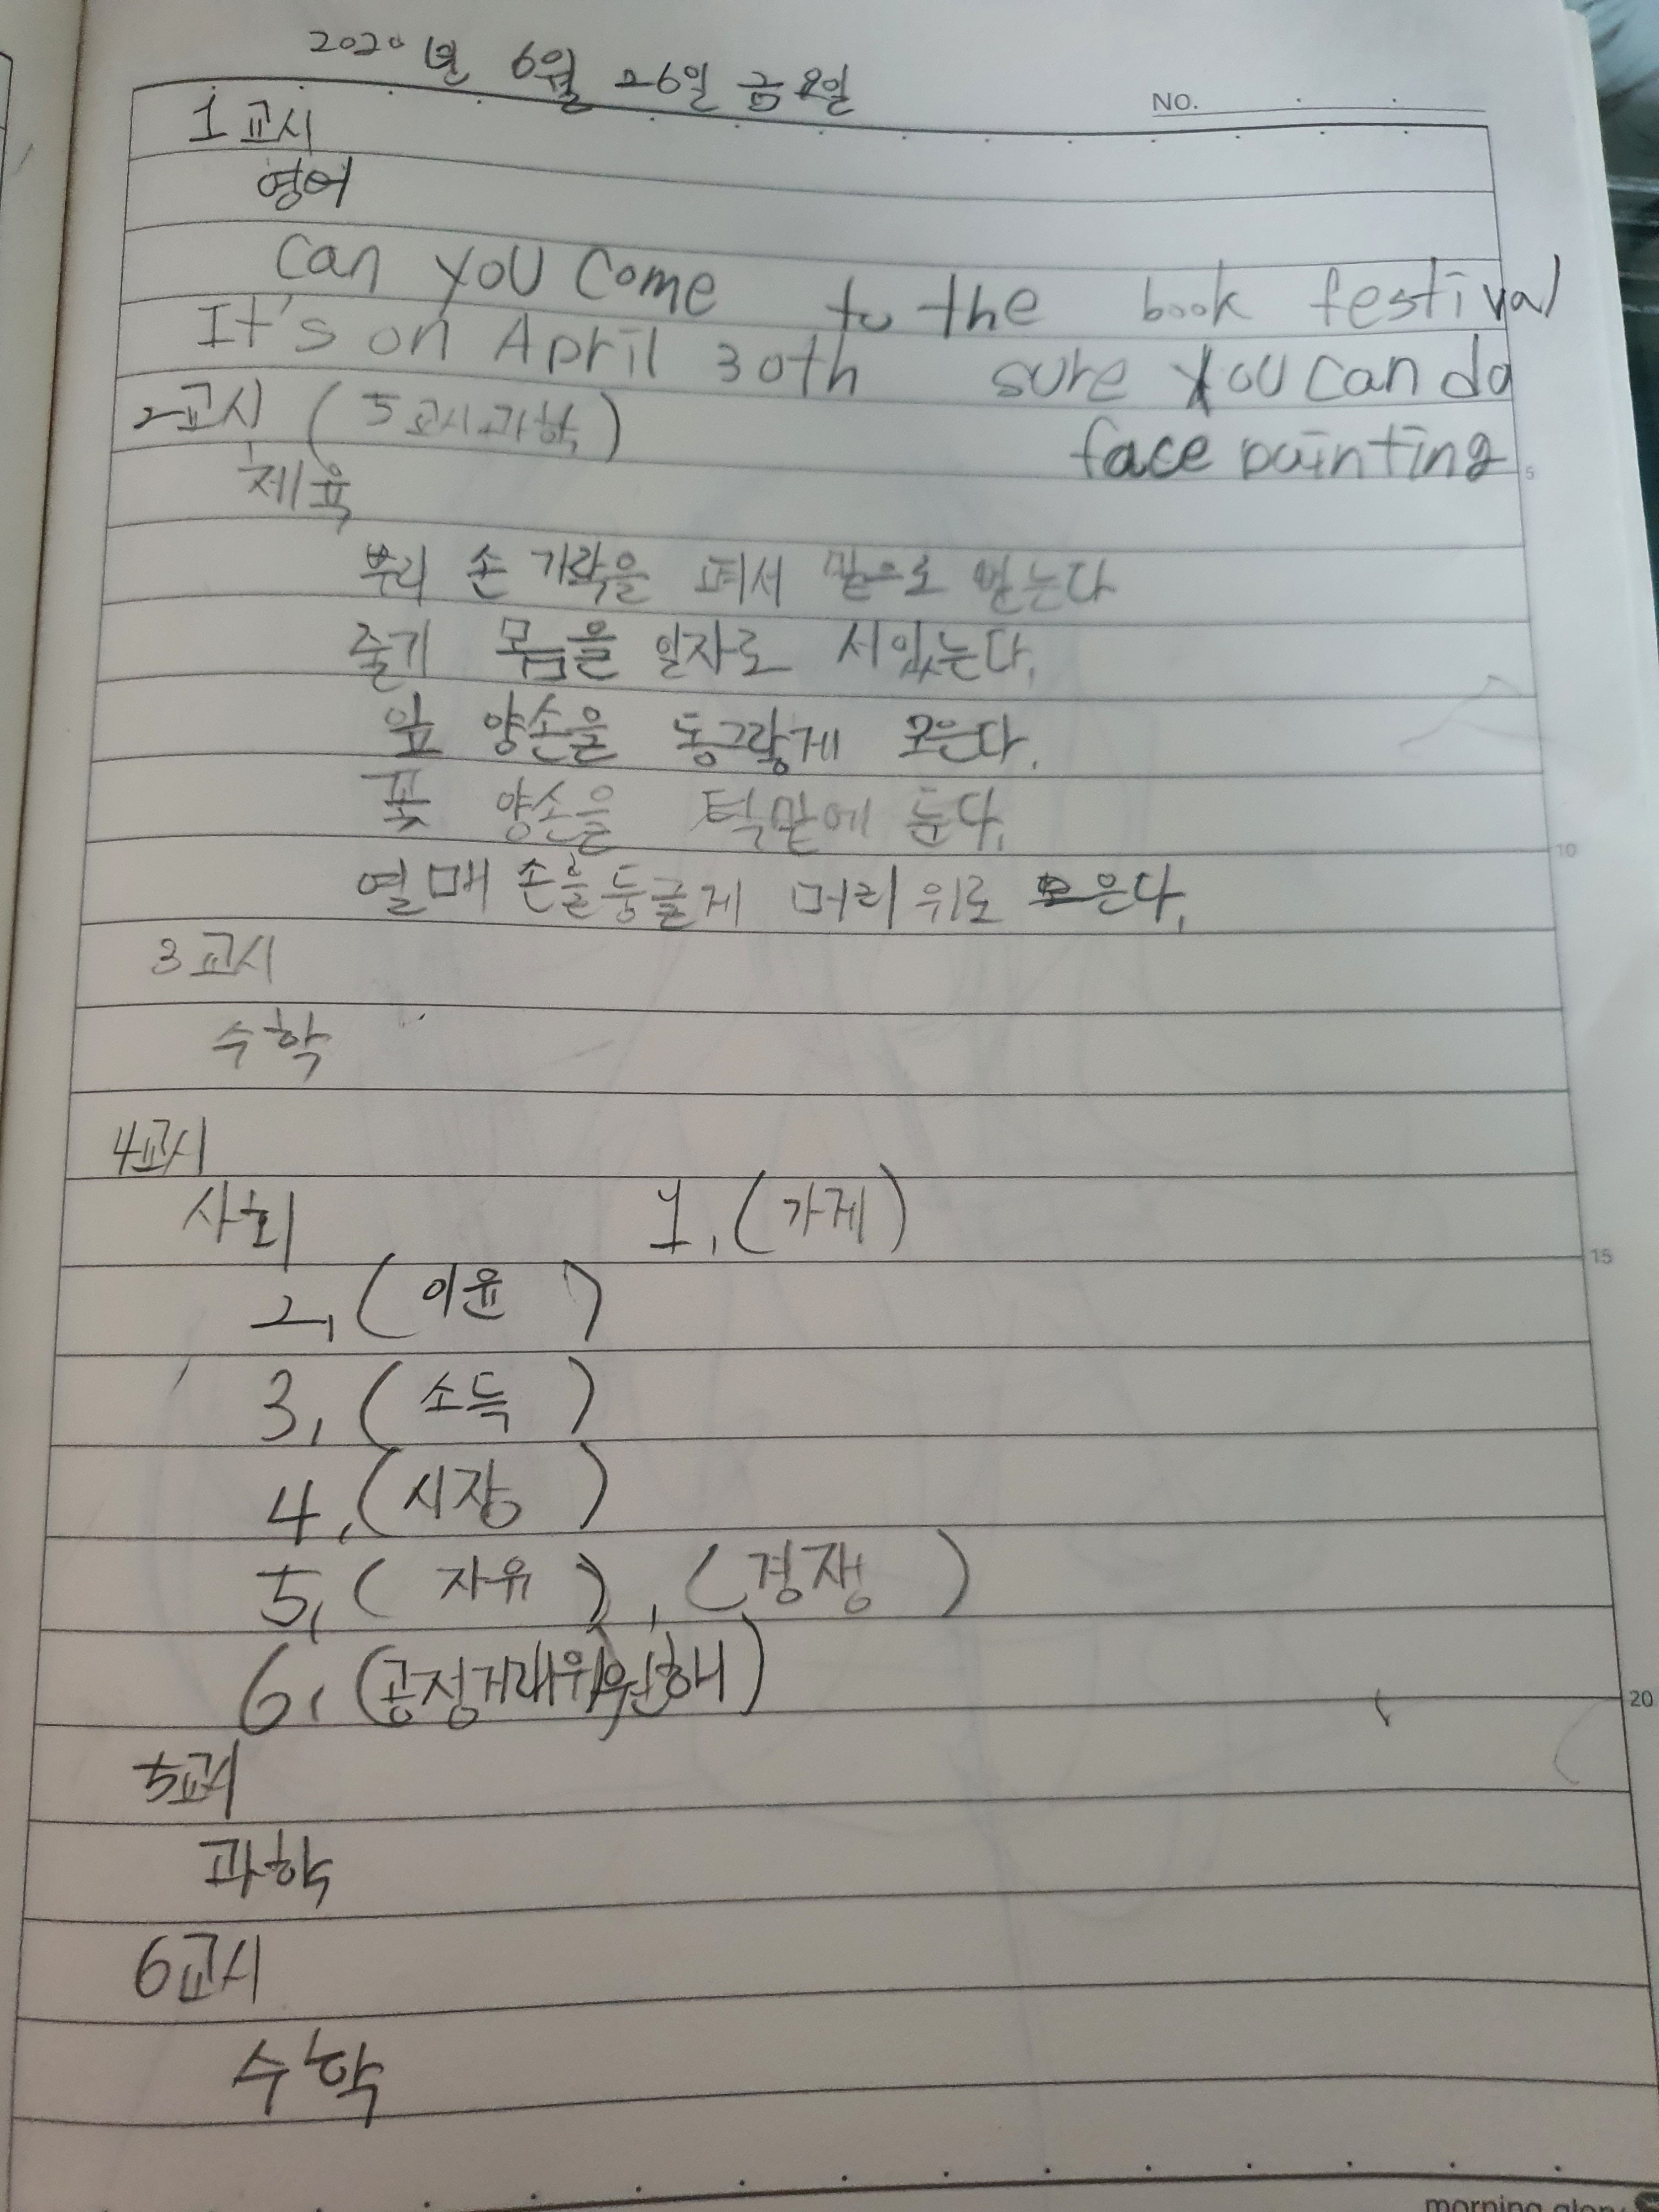 2020년 6월 26일 금요일
NO.
1교시
영어
can you come to the book festival
It's on April 30th sure you can do
face painting
2교시 (5교시과학)
체육
5
뿌리 손가락을 펴서 밑으로 뻗는다
줄기 몸을 일자로 서있는다.
잎 양손을 동그랗게 모은다.
꽃 양손을 턱밑에 둔다.
10
열매 손을 둥글게 머리 위로 모은다.
3교시
수학
4교시
사회 1, (가계)
15
2, (이윤)
3, (소득)
4, (시장)
5, (자유), (경쟁)
6, (공정거래위원회)
20
5교시
과학
6교시
수학
morning glory